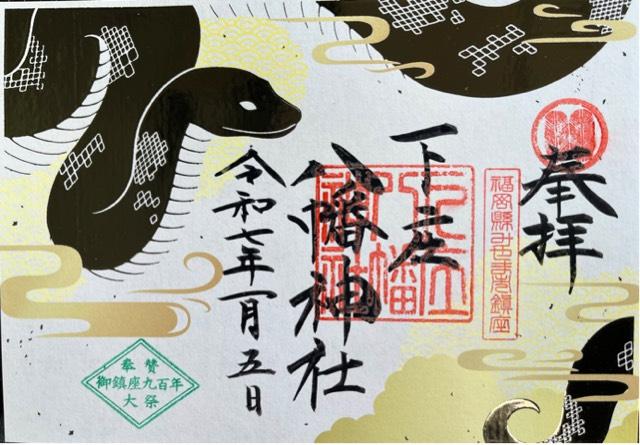 奉拝
福岡縣みやま市鎮座
下庄
八幡神社
令和七年一月五日
奉賛
御鎮座九百年
大祭